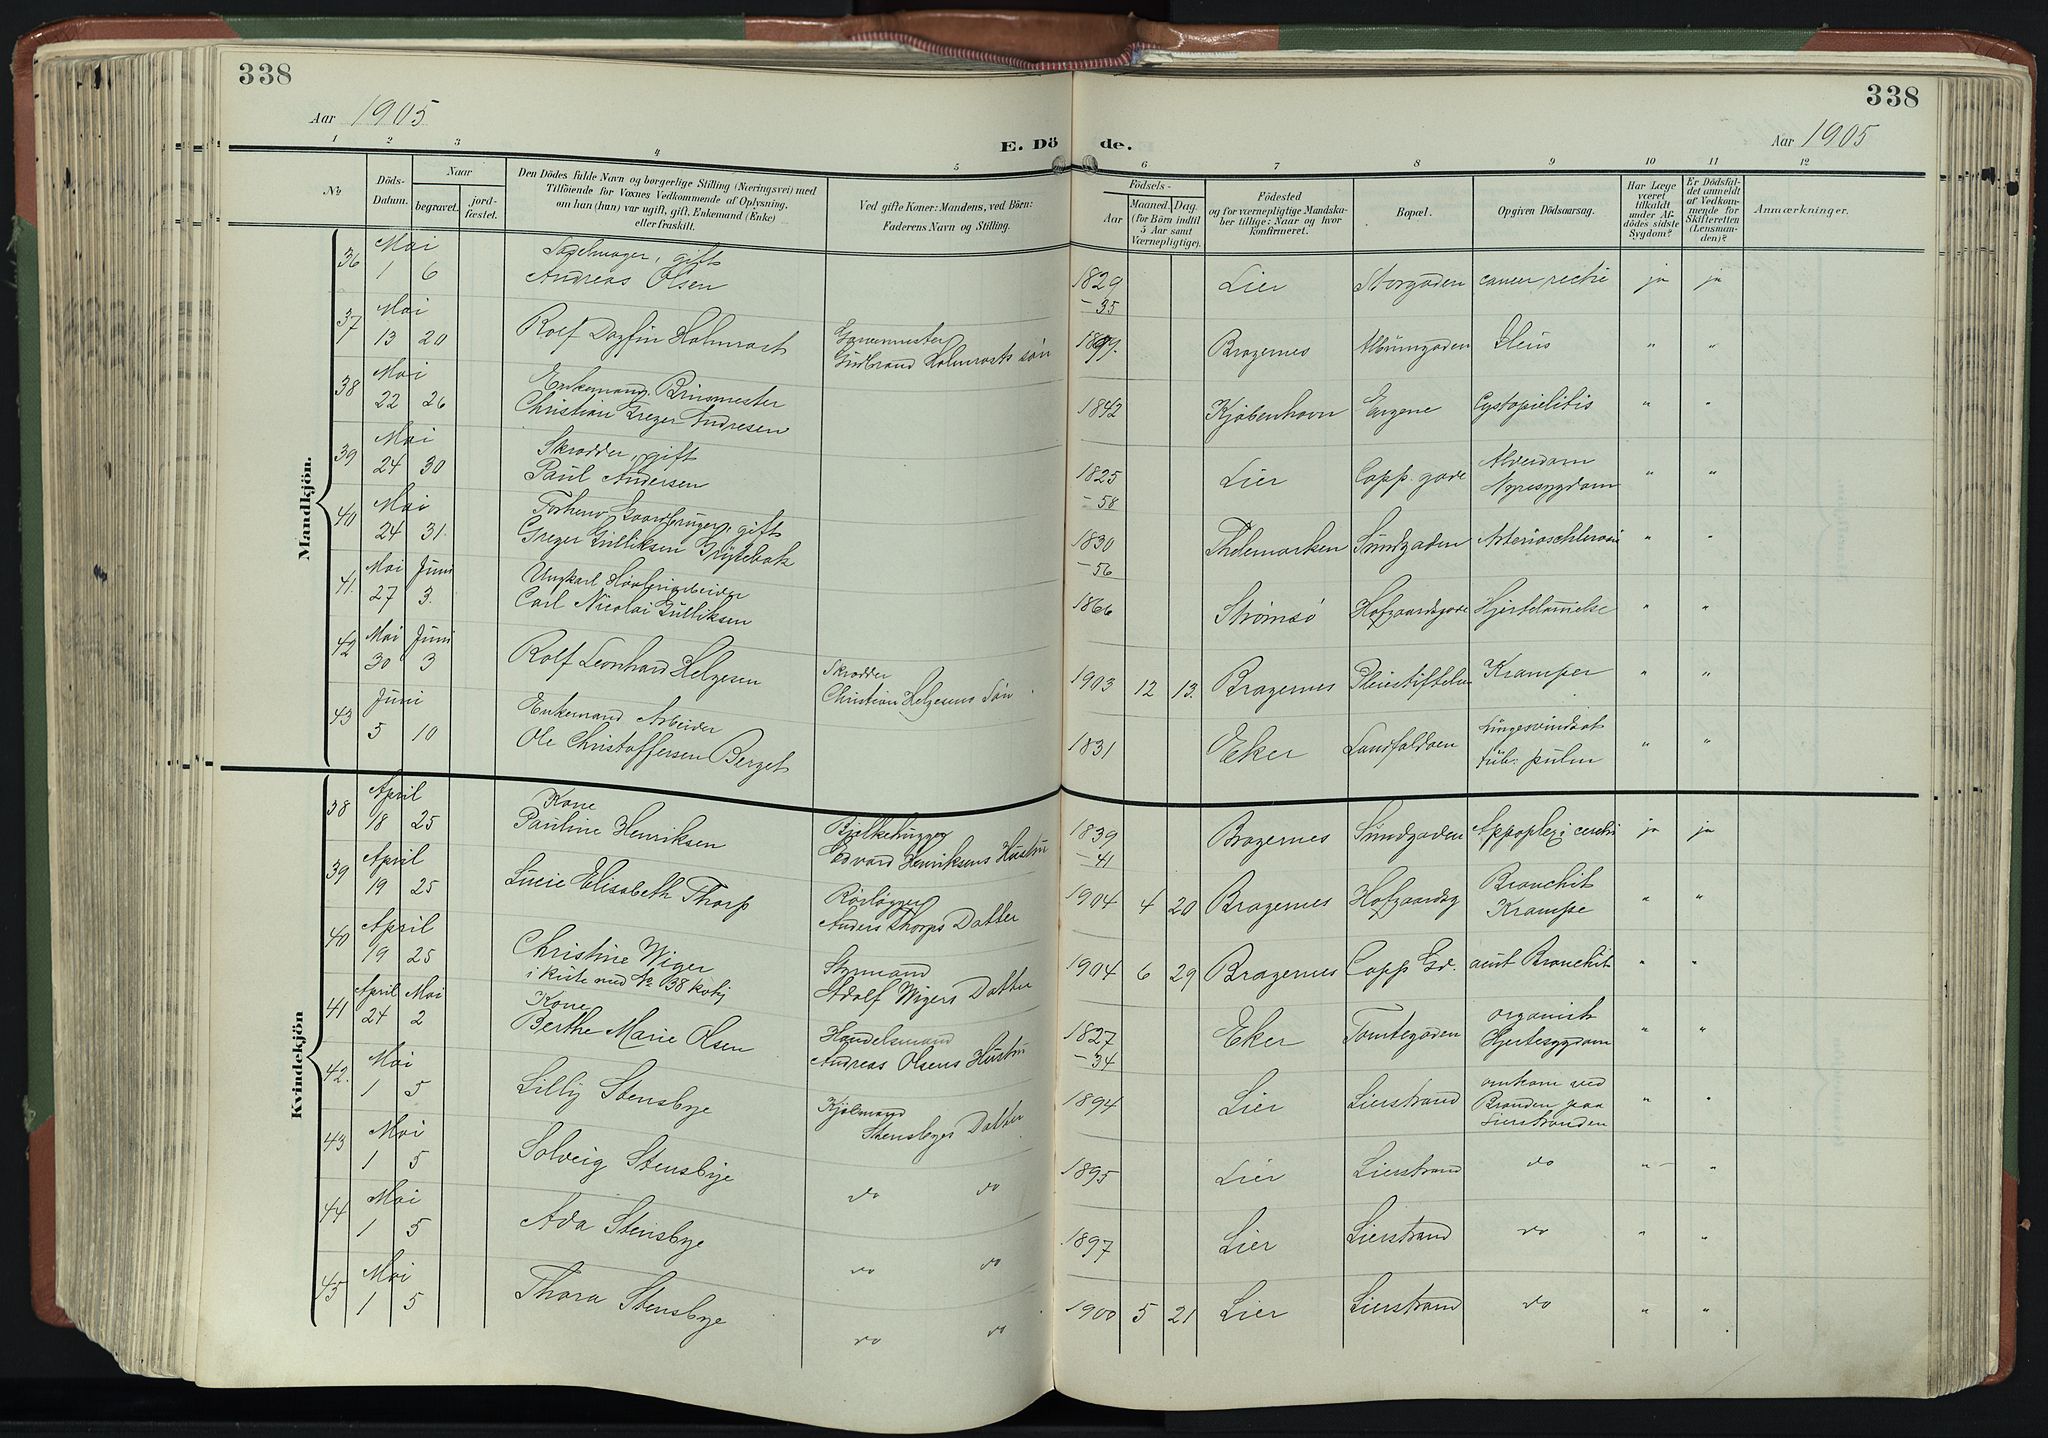 338
338
Aar 1905
E. Dö de.
Aar 1905
1 2 3 4 5 6 7 8 9 10 11 12
No
Döds-Datum.
Naar
begravet.
jord-fæstet.
Den Dödes fulde Navn og borgerlige Stilling (Næringsvei) med
Tilföiende for Voxnes Vedkommende af Oplysning,
om han (hun) var ugift, gift, Enkemand (Enke)
eller fraskilt.
Ved gifte Koner: Mandens, ved Börn:
Faderens Navn og Stilling.
Födsels-
Aar
Maaned. Dag.
(for Börn indtil
5 Aar samt
Værnepligtige).
Födested
og for værnepligtige Mandska-
ber tillige: Naar og hvor
konfirmeret.
Bopæl.
Opgiven Dödsaarsag.
Har Læge
været
tilkaldt
under Af-
dödes sidste
Sygdom?
Er Dödsfal-
det anmeldt
af Vedkom-
mende for
Skifteretten
(Lensman-
den)?
Anmærkninger.
Mandkjön.
36 Mai 1 6 gift Andreas Olsen 1829 -35 Lier Storgaden cancer recti ja ja
37 Mai 13 20 Rolf Dagfin Holmrast Garvermester Gudbrand Holmrasts søn Bragernes Ileus " "
38 Mai 22 26 Enkemand, Christian Greger Andresen 1842 Kjøbenhavn Engene Cystopielitis " "
39 Mai 24 30 Skrædder, gift Paul Andersen 1825 -58 Lier Capp. gade Alderdom Nyresygdom " "
40 Mai 24 31. Forhenv Gaardbruger, gift Greger Gulliksen 1830 -56 Thelemarken Sundgaden " "
41. Mai 27 Juni 3. Ungkarl Høvleriarbeider Carl Nicolai Gulliksen 1866 Strømsø Hofgaardsgade Hjertelammelse " "
42 Mai 30 Juni 3 Rolf Leonhard Helgesen Skrædder Christian Helgesens Søn 1903 12 13. Bragernes Pleiestiftelse Kramper " "
43 Juni 5 10 Enkemand Arbeider Ole Christoffersen Berget 1831 Eker Landfaldøen Lungesvindsot tub. pulm " "
Kvindekjön
38 April 18 25 Kone Pauline Henriksen Bjelkehugger Edvard Henriksens Hustru 1839 -41 Bragernes Sundgaden Appoplexi cerebri ja ja
39 April 19 25 Lucie Elisabeth Thorp Rørlægger Anders Thorps Datter 1904 4 20 Bragernes Hofgaardsg Bronchit Krampe " "
40 April 19 25 Christine Wiger i kiste med No 38 Styrmand Adolf Wigers Datter 1904 6 29 Bragernes Capp Gd. acut Bronchit " "
41 April 24 Mai 2 Kone Berthe Marie Olsen Handelsmand Andreas Olsens Hustru 1827 -34 Eker Tomtegaden organisk Hjertesygdom " "
42. Mai 1 5 Lilly Stensbye Kjølmand Stensbyes Datter 1894 Lier Lierstrand omkom ved Branden paa Lierstranden " "
43 Mai 1 5 Solveig Stensbye do do 1895 Lier Lierstrand do " "
44 Mai 1 5 Ada Stensbye do do 1897 Lier Lierstrand do " "
45 Mai 1 5 Thora Stensbye do do 1900 5 21 Lier Lierstrand do " "